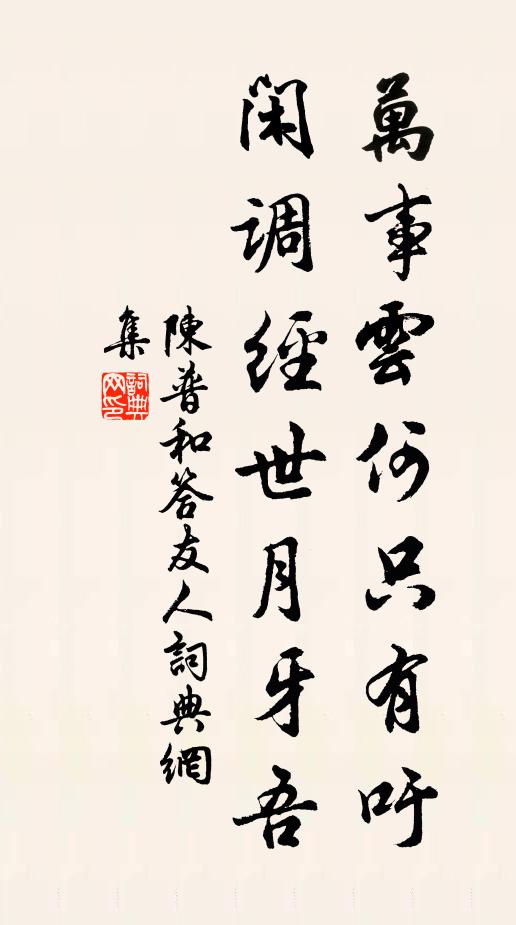 萬事雲何只有吁
閑調經世月牙吾
陳普和答友人詞典網
集
詞典网印